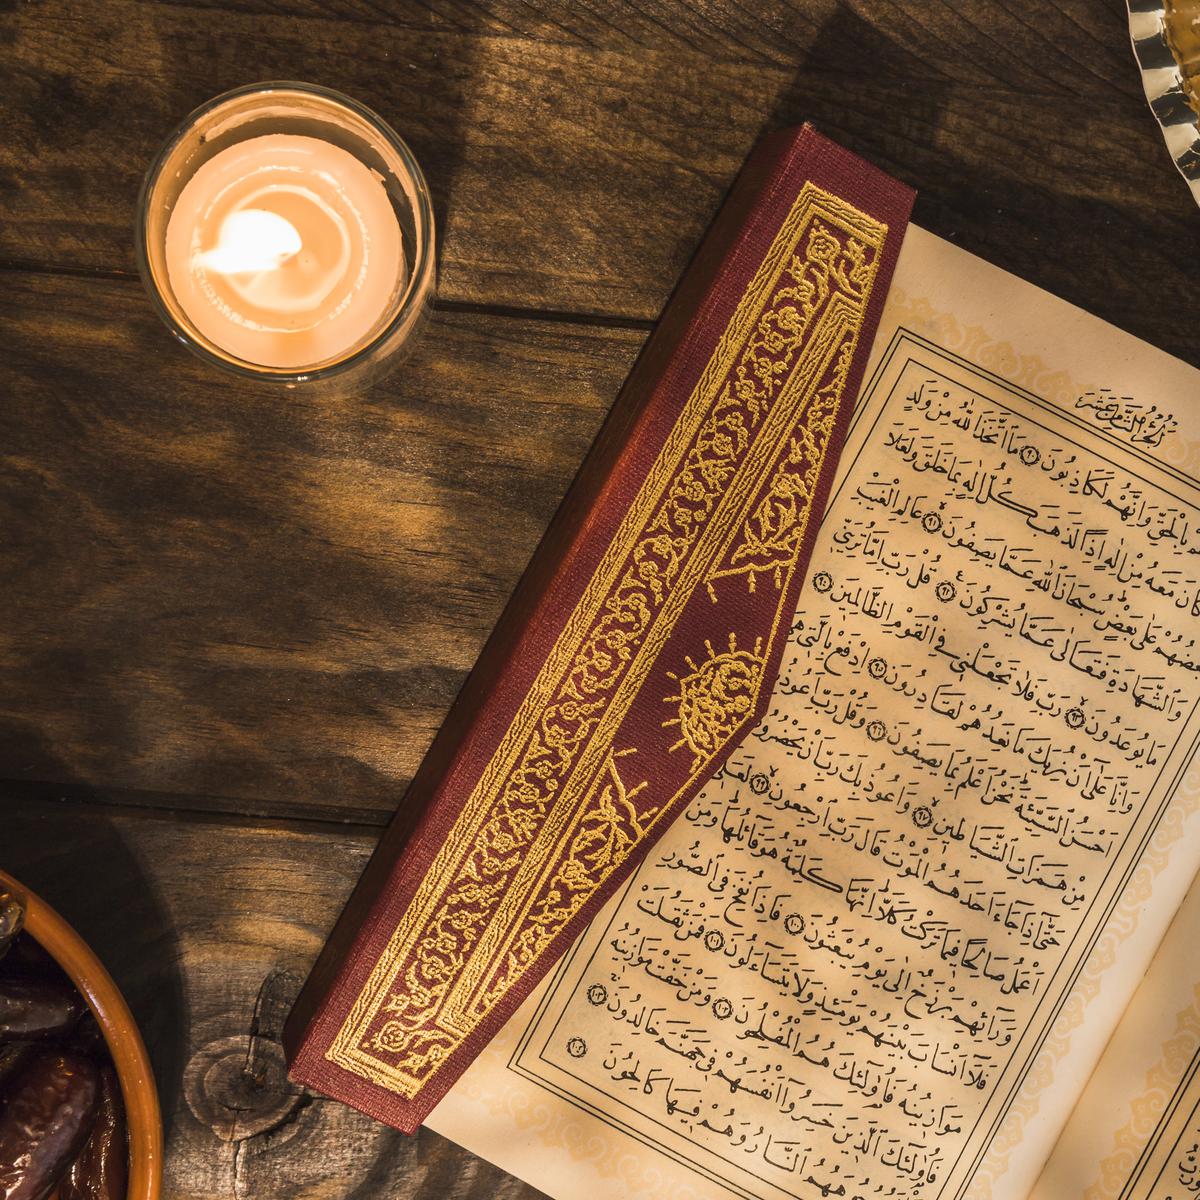 الجزء الثامن عشر
بالحق وانهم لكاذبون ٩٠ ما اتخذ الله من ولد
كان معه من اله اذا لذهب كل اله بما خلق ولعلا
بعضهم على بعض سبحان الله عما يصفون ٩١ عالم الغيب
والشهادة فتعالى عما يشركون ٩٢ قل رب اما تريني
ما يوعدون ٩٣ رب فلا تجعلني في القوم الظالمين ٩٤
وانا على ان نريك ما نعدهم لقادرون ٩٥ ادفع بالتي هي
احسن السيئة نحن اعلم بما يصفون ٩٦ وقل رب اعوذ
من همزات الشياطين ٩٧ واعوذ بك رب ان يحضرون
حتى اذا جاء احدهم الموت قال رب ارجعون ٩٩ لعلي
اعمل صالحا فيما تركت كلا انها كلمة هو قائلها ومن
ورائهم برزخ الى يوم يبعثون ١٠٠ فاذا نفخ في الصور
فلا انساب بينهم يومئذ ولا يتساءلون ١٠١ فمن ثقلت
موازينه فاولئك هم المفلحون ١٠٢ ومن خفت موازينه
فاولئك الذين خسروا انفسهم في جهنم خالدون ١٠٣
وجوههم النار وهم فيها كالحون ١٠٤